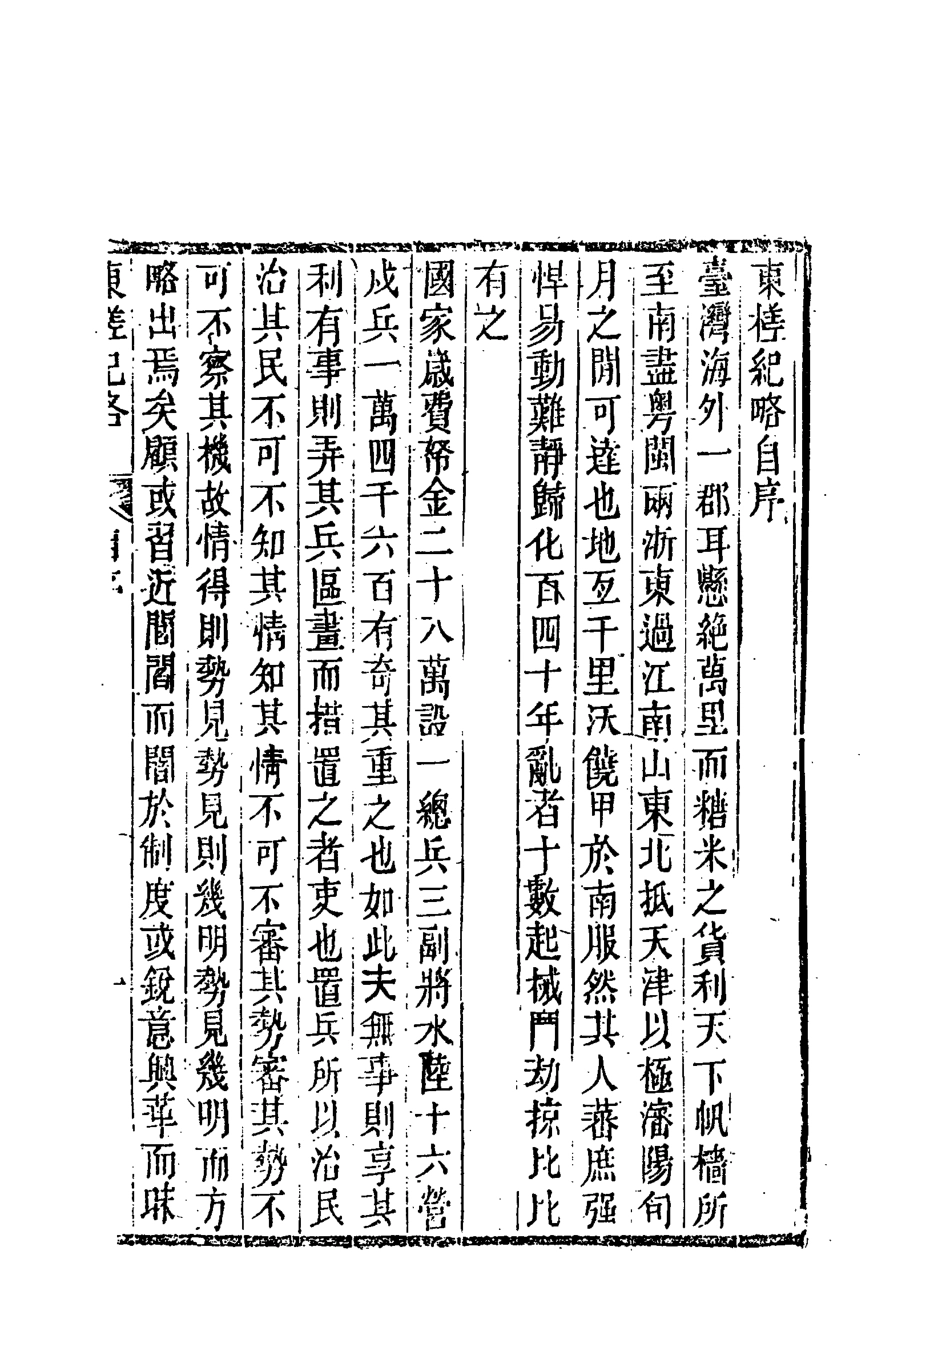 東槎紀略自序
臺灣海外一郡耳懸絶萬里而糖米之貨利天下帆檣所
至南盡粤閩兩浙東過江南山東北抵天津以極瀋陽旬
月之間可達也地亙千里沃饒甲於南服然其人蕃庶强
悍易動難靜歸化百四十年亂者十數起械鬥劫掠比比
有之
國家歲費帑金二十八萬設一總兵三副將水陸十六營
戍兵一萬四千六百有奇其重之也如此夫無事則享其
利有事則弄其兵區畫而措置之者吏也置兵所以治民
治其民不可不知其情知其情不可不審其勢審其勢不
可不察其機故情得則勢見勢見則幾明勢見幾明而方
略出焉矣顧或習近閭閻而闇於制度或銳意興革而昧
東槎紀略